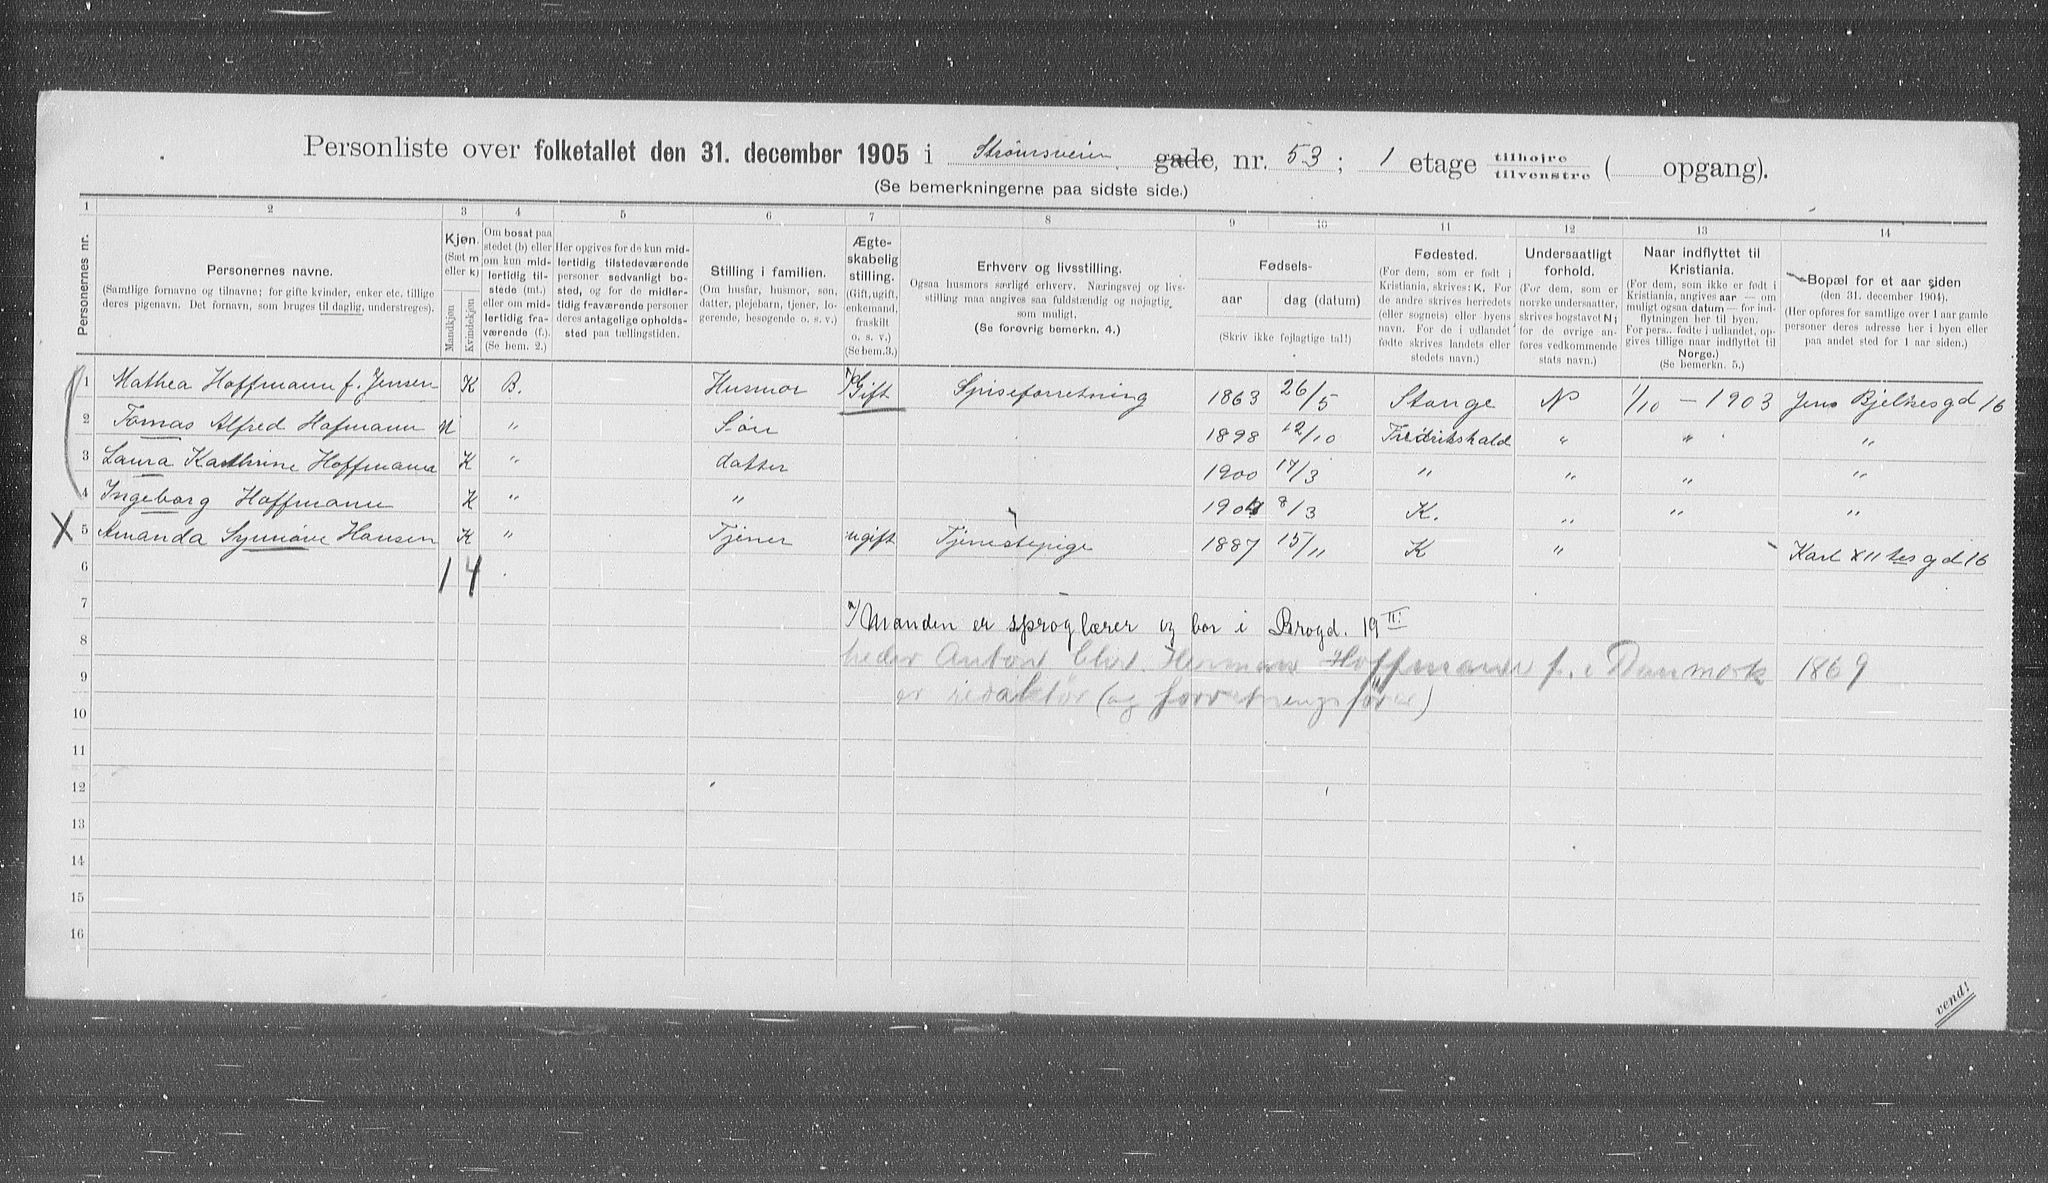 Personliste over folketallet den 31. december 1905 i Strømsveien gade, nr. 53; 1 etage tilhøjre tilvenstre ( opgang).
(Se bemerkningerne paa sidste side.)
1 2 3 4 5 6 7 8 9 10 11 12 13 14
Personernes nr.
Personernes navne.
(Samtlige fornavne og tilnavne; for gifte kvinder, enker etc. tillige
deres pigenavn. Det fornavn, som bruges til daglig, understreges).
Kjøn.
(Sæt m
eller k)
Mandkjøn
Kvindekjøn
Om bosat paa
stedet (b) eller
om kun mid-
lertidig til-
stede (mt.)
eller om mid-
lertidig fra-
værende (f.).
(Se bem. 2.)
Her opgives for de kun mid-
lertidig tilstedeværende
personer sedvanlig bo-
sted, og for de midler-
tidig fraværende personer
deres antagelige opholds-
sted paa tællingstiden.
Stilling i familien.
(Om husfar, husmor, søn,
datter, plejebarn, tjener, lo-
gerende, besøgende o. s. v.)
Ægte-
skabelig
stilling.
(Gift, ugift,
enkemand,
fraskilt
o. s. v.)
(Se bem. 3.)
Erhverv og livsstilling.
Ogsaa husmors særlige erhverv. Næringsvej og livs-
stilling maa angives saa fuldstændig og nøjagtig
som muligt.
(Se forøvrig bemerkn. 4.)
Fødsels-
aar dag (datum)
(Skriv ikke fejlagtige tal!)
Fødested.
(For dem, som er født i
Kristiania, skrives: K. For
de andre skrives herredets
(eller sognets) eller byens
navn. For de i udlandet
fødte skrives landets eller
stedets navn.)
Undersaatligt
forhold.
(For dem, som er
norske undersaatter,
skrives bogstavet N;
for de øvrige an-
føres vedkommende
stats navn.)
Naar indflyttet til
Kristiania.
(For dem, som ikke er født i
Kristiania, angives aar — om
muligt ogsaa datum — for ind-
flytningen her til byen.
For pers. fødte i udlandet, op-
gives tillige naar indflyttet til
Norge.)
(Se bemerkn. 5.)
Bopæl for et aar siden
(den 31. december 1904).
(Her opføres for samtlige over 1 aar gamle
personer deres adresse her i byen eller
paa andet sted for 1 aar siden.)
1 Mathea Hoffmann f. Jensen K B. Husmor Gift Spiseforretning 1863 26/5 Stange N 1/10 - 1903 Jens Bjelkesgd 16
2 Tomas Alfred Hofmann M " Søn 1898 12/10 Fredrikshald " " "
3 Laura Kathrine Hoffmann K " datter 1900 17/3 " " " "
4 Ingeborg Hoffmann K " " 1904 8/3 K. " " "
X 5 Amanda Synnøve Hansen K " Tjener ugift Tjenestepige 1887 15/11 K " Karl XII tes gd 16
6 1 4
7 Manden er sproglærer og bor i Brogd. 19 II
8 heder Anton Chr. Herman Hoffmann f. i Danmark 1869
9 er redaktør (og forretningsfører)
10
11
12
13
14
15
16
vend!